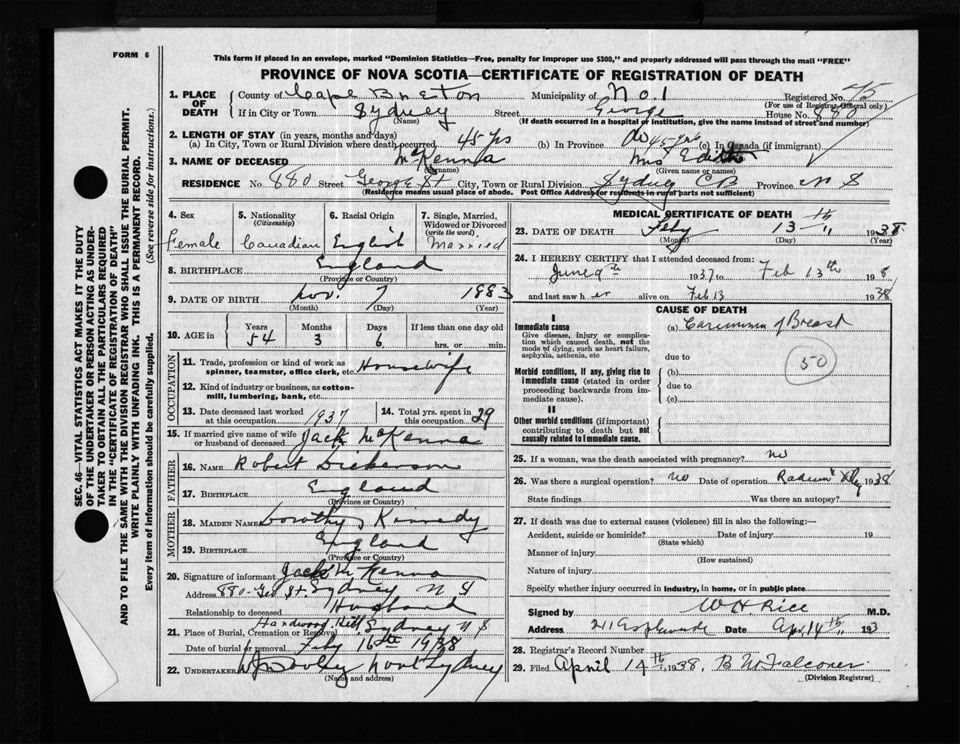 FORM 6
This form if placed in an envelope, marked "Dominion Statistics—Free, penalty for improper use $300," and properly addressed will pass through the mail "FREE"
PROVINCE OF NOVA SCOTIA—CERTIFICATE OF REGISTRATION OF DEATH
SEC. 46—VITAL STATISTICS ACT MAKES IT THE DUTY
OF THE UNDERTAKER OR PERSON ACTING AS UNDER-
TAKER TO OBTAIN ALL THE PARTICULARS REQUIRED
IN THE "CERTIFICATE OF REGISTRATION OF DEATH"
AND TO FILE THE SAME WITH THE DIVISION REGISTRAR WHO SHALL ISSUE THE BURIAL PERMIT.
WRITE PLAINLY WITH UNFADING INK. THIS IS A PERMANENT RECORD.
Every item of information should be carefully supplied. (See reverse side for instructions.)
1. PLACE OF DEATH County of Cape Breton Municipality of No. 1 Registered No. 75
(For use of Registrar General only)
If in City or Town Sydney Street George House No. 880
(Name) (If death occurred in a hospital or institution, give the name instead of street and number)
2. LENGTH OF STAY (in years, months and days)
(a) In City, Town or Rural Division where death occurred 45 yrs (b) In Province do 45 yrs (c) In Canada (if immigrant)
3. NAME OF DECEASED McKenna Mrs Edith
(Surname) (Given name or names)
RESIDENCE No. 880 Street George St City, Town or Rural Division Sydney CB Province N S
(Residence means usual place of abode. Post Office Address for residents in rural parts not sufficient)
4. Sex Female
5. Nationality (Citizenship) Canadian
6. Racial Origin English
7. Single, Married, Widowed or Divorced (write the word) Married
8. BIRTHPLACE England
(Province or Country)
9. DATE OF BIRTH Nov. 7 1883
(Month) (Day) (Year)
10. AGE in Years 54 Months 3 Days 6 If less than one day old hrs. or min.
OCCUPATION
11. Trade, profession or kind of work as spinner, teamster, office clerk, etc. Housewife
12. Kind of industry or business, as cotton-mill, lumbering, bank, etc.
13. Date deceased last worked at this occupation 1937
14. Total yrs. spent in this occupation 29
15. If married give name of wife or husband of deceased Jack McKenna
FATHER
16. NAME Robert Dickerson
17. BIRTHPLACE England
(Province or Country)
MOTHER
18. MAIDEN NAME Dorothy Kennedy
19. BIRTHPLACE England
(Province or Country)
20. Signature of informant Jack McKenna
Address 880 Geo St. Sydney N S
Relationship to deceased Husband
21. Place of Burial, Cremation or Removal Hardwood Hill Sydney N S
Date of burial or removal Feby 16th 1938
22. UNDERTAKER North Sydney
(Name and address)
MEDICAL CERTIFICATE OF DEATH
23. DATE OF DEATH Feby 13th 1938
(Month) (Day) (Year)
24. I HEREBY CERTIFY that I attended deceased from:
June 9th 1937 to Feb 13th 198
and last saw her alive on Feb 13 1938
CAUSE OF DEATH
I
Immediate cause
Give disease, injury or complication which caused death, not the mode of dying, such as heart failure, asphyxia, asthenia, etc
(a) Carcinoma of Breast
due to
Morbid conditions, if any, giving rise to immediate cause (stated in order proceeding backwards from immediate cause).
(b)
due to
(c)
50
II
Other morbid conditions (if important) contributing to death but not causally related to immediate cause.
25. If a woman, was the death associated with pregnancy? no
26. Was there a surgical operation? no Date of operation Radium 1938
State findings Was there an autopsy?
27. If death was due to external causes (violence) fill in also the following:—
Accident, suicide or homicide? Date of injury 19
(State which)
Manner of injury
(How sustained)
Nature of injury
Specify whether injury occurred in industry, in home, or in public place
Signed by W H Rice M.D.
Address 211 Esplanade Date Apr 14th 193
28. Registrar's Record Number
29. Filed April 14th 1938. B W Falconer
(Division Registrar)